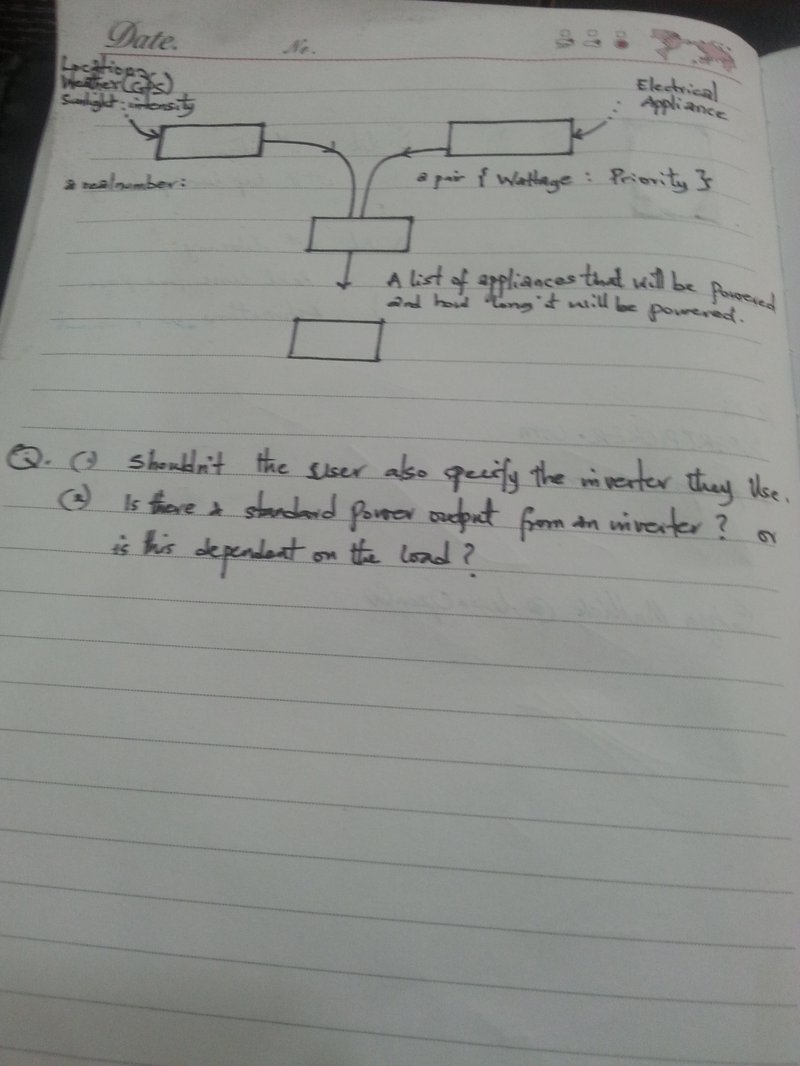 Date.
No.
Location
Weather (GPS)
Sunlight : intensity
Electrical
Appliance
a real number :
a pair { Wattage : Priority }
A list of appliances that will be powered
and how long it will be powered.
Q. (1) Shouldn't the user also specify the inverter they Use.
(2) Is there a standard Power output from an inverter? or
is this dependent on the load?